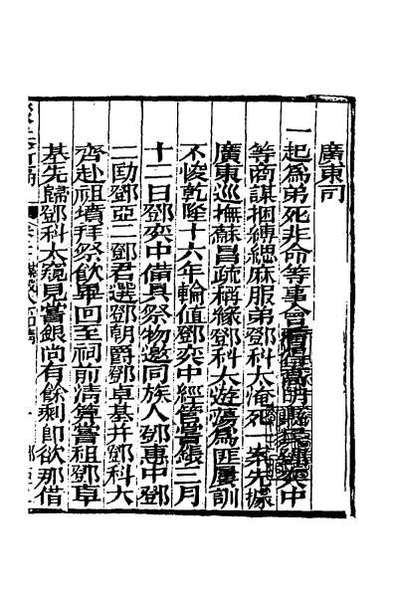 廣東司
一起爲弟死非命等事會看得高明縣民鄧奕中
等商謀捆縛緦麻服弟鄧科太淹死一案先據
廣東巡撫蘇昌疏稱緣鄧科太遊蕩爲匪屢訓
不悛乾隆十六年輪值鄧奕中經管嘗銀三月
十二日鄧奕中備具祭物邀同族人鄧惠中鄧
二勷鄧亞二鄧君選鄧朝爵鄧卓基并鄧科六
齊赴祖墳拜祭飲畢回至祠前清算嘗租鄧卓
基先歸鄧科太窺見嘗銀尚有餘剩即欲那借